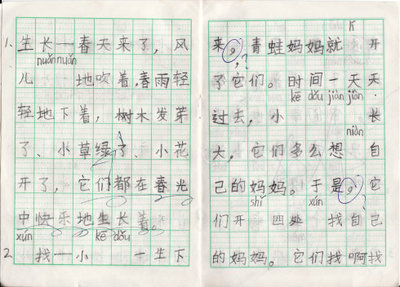 1、生长一春天来了，风
nuǎn nuǎn
儿 地吹着，春雨轻
轻地下着，树木发芽
了、小草绿了、小花
开了，它们都在春光
中快乐地生长着
xún kē dǒu
2 找一小 一生下
来，青蛙妈妈就 开
了它们。时间一天天
kē dǒu jiàn jiàn
过去，小 长
niàn
大，它们多么想 自
己的妈妈。于是，它
shì xún
们开 四处 找自己
的妈妈。它们找啊找